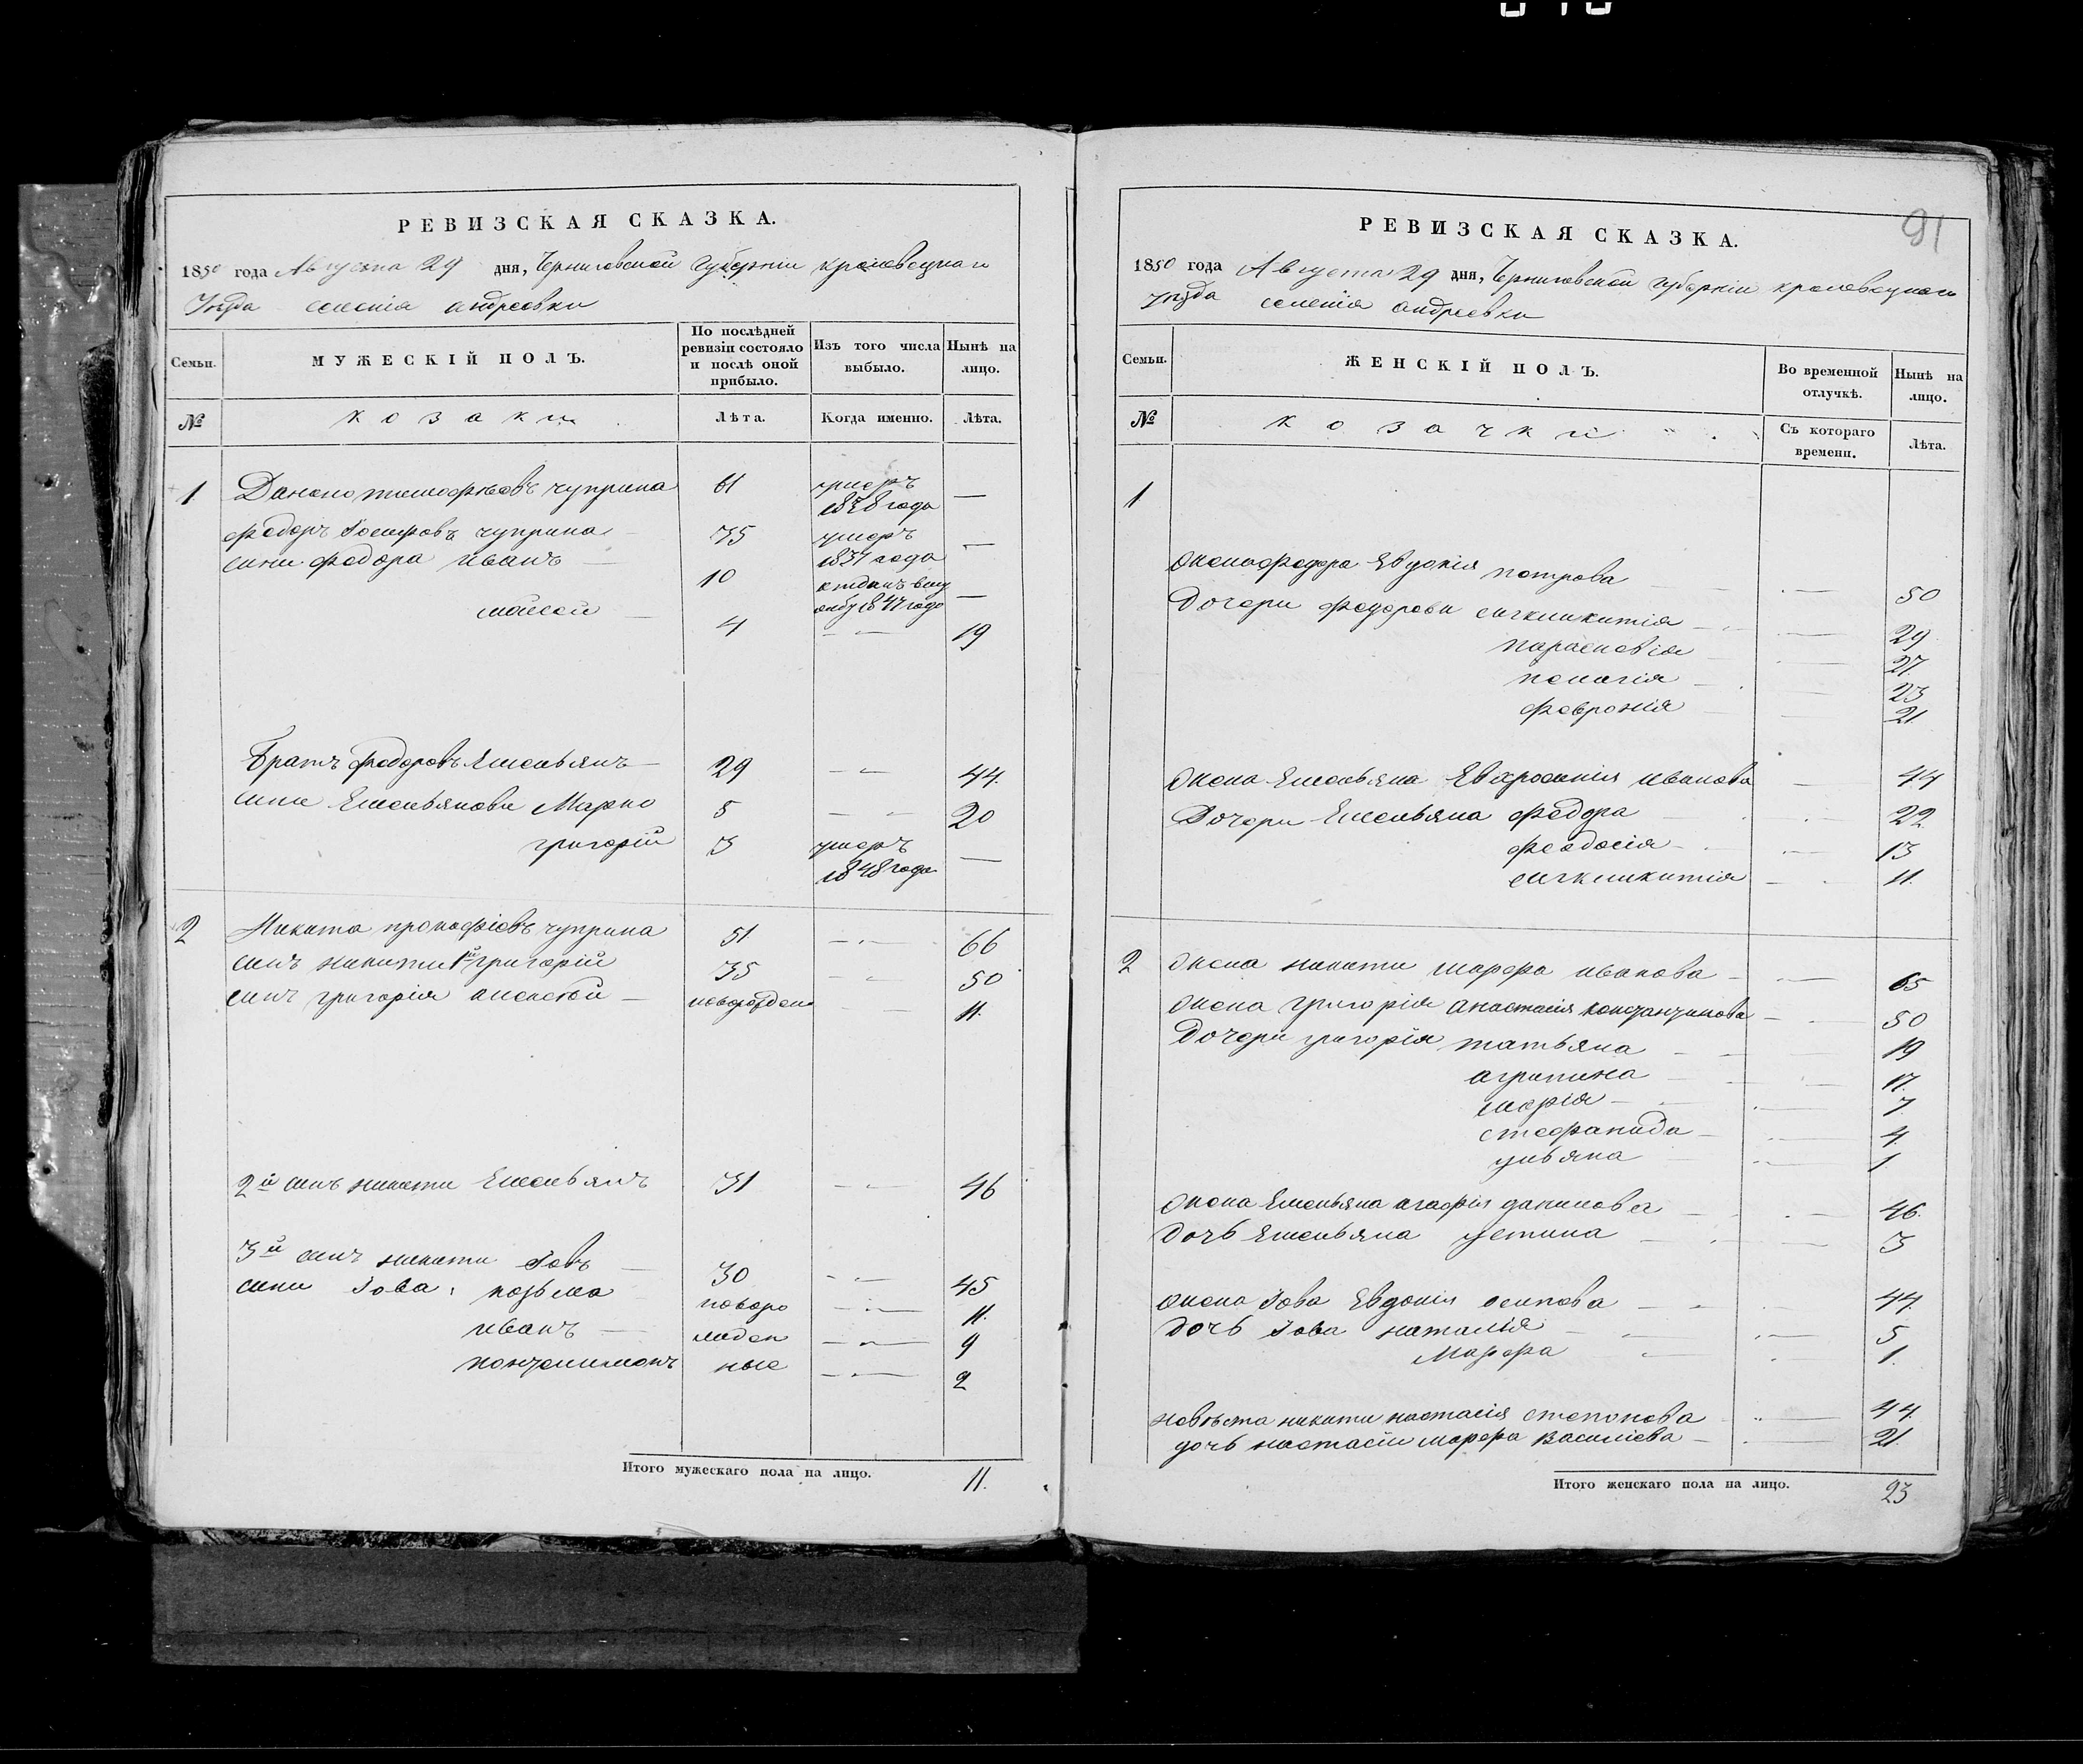 РЕВИЗСКАЯ СКАЗКА.
1850 года Августа 29 дня, Черниговской Губерніи кролевецкаго
Уѣзда селенія андреевки
Семьи.
МУЖЕСКІЙ ПОЛЪ.
По послѣдней ревизіи состояло и послѣ оной прибыло.
Изъ того числа выбыло.
Нынѣ на лицо.
№
козаки
Лѣта.
Когда именно.
Лѣта.
1 Данило тимофѣевъ чуприна 61 умеръ —
1838 года
федоръ Іосифовъ чуприна 35 умеръ —
1837 года
сини федора иванъ — 10 отданъ въ —
1847 годо
мойсей — 4 — 19
Братъ федоровъ Емельянъ — 29 — 44
сини Емельянови Марко 5 — 20
григорій 3 умеръ —
1848 года
2 Никита прокофіевъ чуприна 51 — 66
синъ никити 1й григорій 35 — 50
синъ григорія алексѣй — новорожден — 11.
2й синъ никити Емельянъ 31 — 46
3й синъ никити Іовъ — 30 — 45
сини Іова, козьма новоро — 11.
иванъ — жден — 9
пантелимонъ ные — 2
Итого мужескаго пола на лицо. 11.
91
РЕВИЗСКАЯ СКАЗКА.
1850 года Августа 29 дня, Черниговской Губерніи кролевецкаго
уѣзда селенія андреевки
Семьи.
ЖЕНСКІЙ ПОЛЪ.
Во временной отлучкѣ.
Нынѣ на лицо.
№
козачки
Съ котораго времени.
Лѣта.
1
жена федора Евдокія петрова — 50
Дочери федорови сигкликитія — 29
парасковія — 27
пелагія — 23
февронія — 21
жена Емельяна Евфросинія иванова — 44
Дочери Емельяна федора 22
феодосія — 13
сигкликитія — 11.
2 жена никити марфа иванова — 65
жена григорія анастасія константинова — 50
Дочери григорія татьяна — 19
агрипина — 17.
марія — 7
стефанида — 4
ульяна — 1
жена Емельяна агафія данилова — 46.
дочь Емельяна устина — 3
жена Іова Евдокія осипова — 44.
дочь Іова наталія — 5
Марфа — 1.
невѣста никити настасія степонова — 44.
дочь настасіи марфа василіева — 21.
Итого женскаго пола на лицо. 23